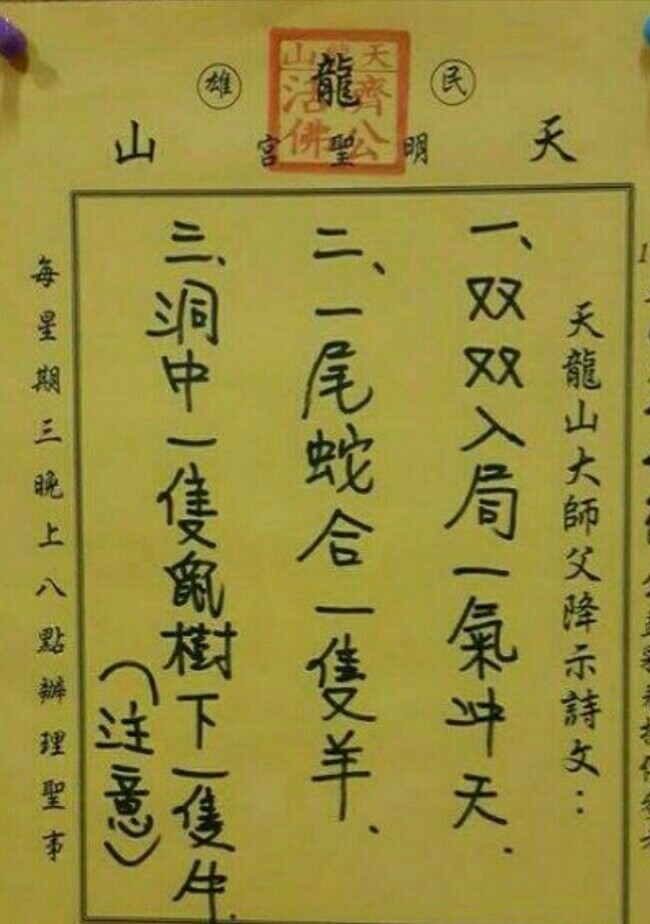 民 龍 雄
天龍山
濟公
活佛
天 明聖宮 山
天龍山大師父降示詩文：
一、双双入局一氣冲天．
二、一尾蛇合一隻羊、
三、洞中一隻鼠樹下一隻牛．
（注意）
每星期三晚上八點辦理聖事